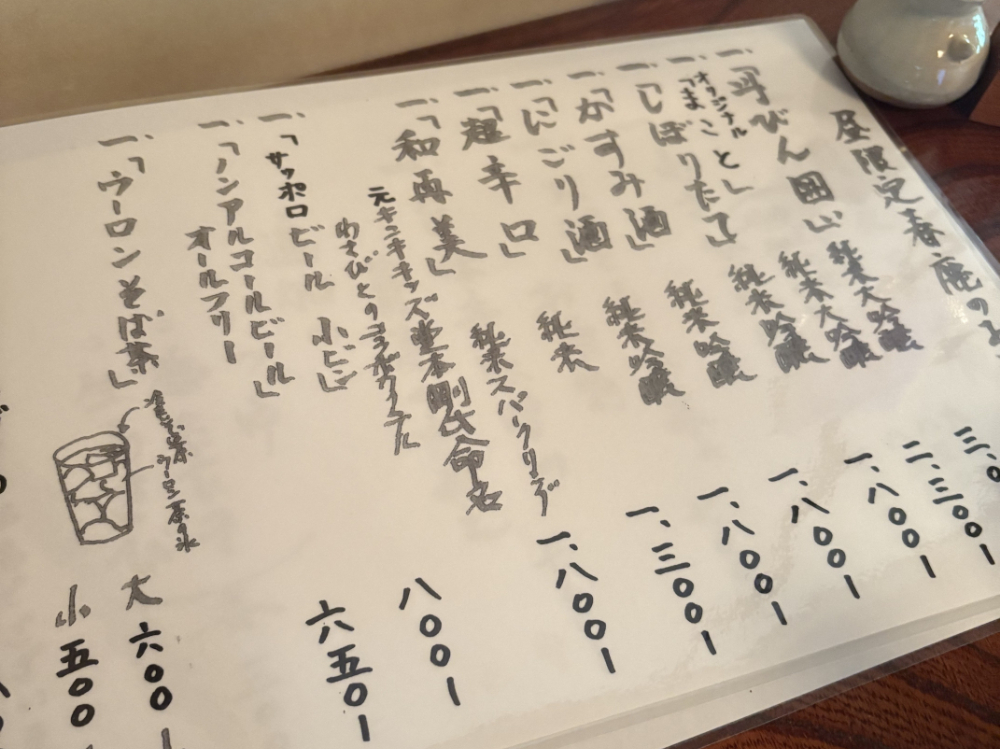 昼限定春鹿の
一、「斗びん囲い」 純米大吟醸 三、〇
一、オリジナル「まこと」 純米大吟醸 二、三〇〇ー
一、「しぼりたて」 純米吟醸 一、八〇〇ー
一、「かすみ酒」 純米吟醸 一、八〇〇ー
一、「にごり酒」 純米吟醸 一、八〇〇ー
一、「超辛口」 純米 一、三〇〇ー
一、「和再美」 純米スパークリング 一、八〇〇ー
元キンキキッズ堂本剛氏命名
わさびとのコラボ
一、「サッポロビール 小ビン」 八〇〇ー
一、「ノンアルコールビール」 六五〇ー
オールフリー
一、「ウーロンそば茶」 大 六〇〇ー
小 五〇〇
ウーロン茶の氷